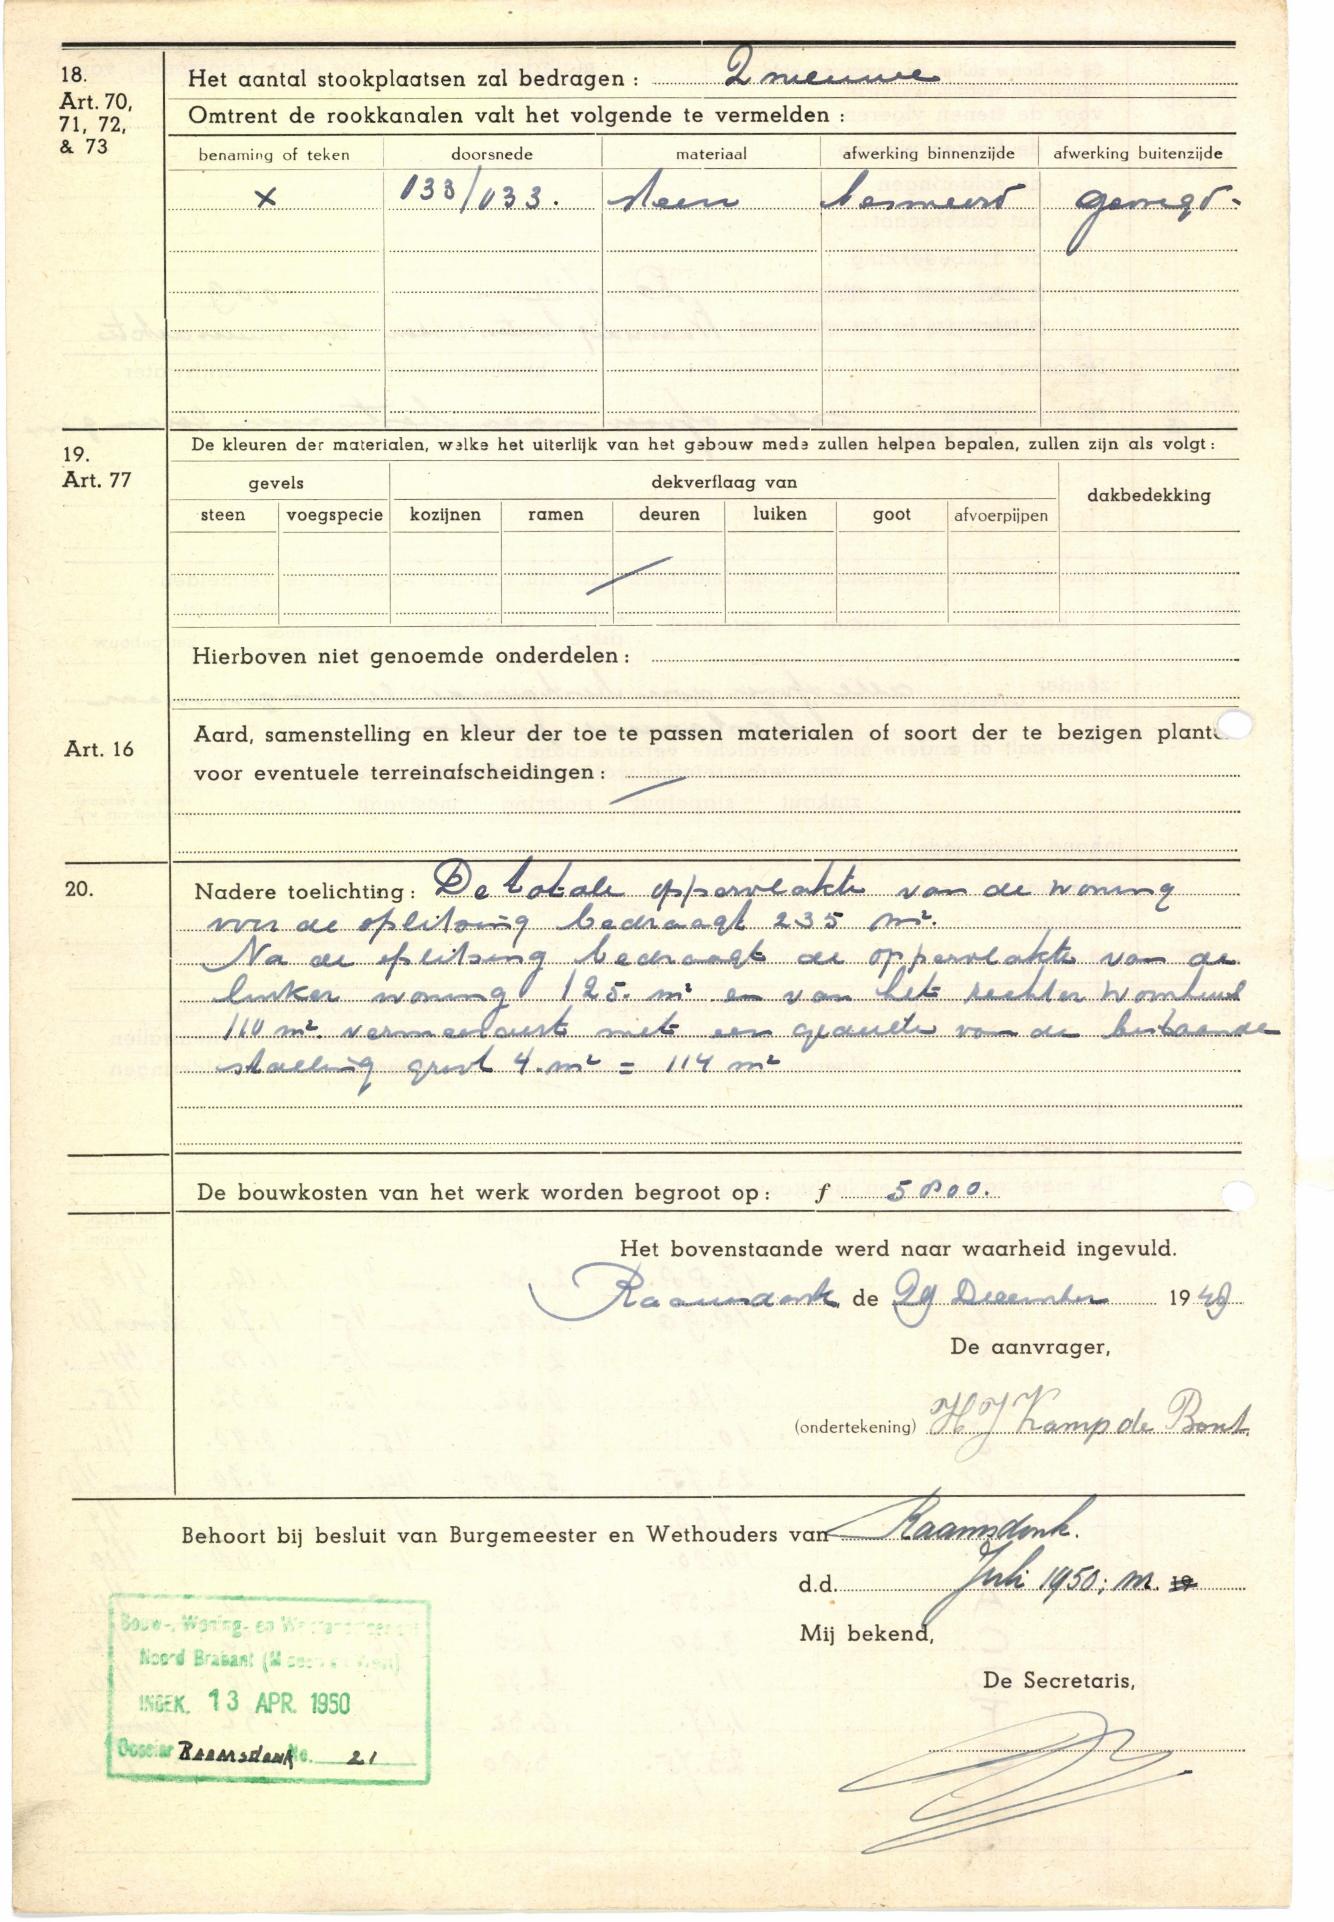 18.
Art. 70,
71, 72,
& 73
Het aantal stookplaatsen zal bedragen : 2 nieuwe
Omtrent de rookkanalen valt het volgende te vermelden :
benaming of teken doorsnede materiaal afwerking binnenzijde afwerking buitenzijde
x 033/033. steen besmeerd gevoegd.
19.
Art. 77
De kleuren der materialen, welke het uiterlijk van het gebouw mede zullen helpen bepalen, zullen zijn als volgt :
gevels dekverflaag van dakbedekking
steen voegspecie kozijnen ramen deuren luiken goot afvoerpijpen
Hierboven niet genoemde onderdelen :
Art. 16
Aard, samenstelling en kleur der toe te passen materialen of soort der te bezigen plant
voor eventuele terreinafscheidingen :
20.
Nadere toelichting : De totale oppervlakte van de woning
voor de splitsing bedraagt 235 m².
Na de splitsing bedraagt de oppervlakte van de
linker woning 125. m² en van het rechter woonhuis
110 m². vermeerderd met een gedeelte van de bestaande
stalling groot 4. m² = 114 m²
De bouwkosten van het werk worden begroot op : f 5000.
Het bovenstaande werd naar waarheid ingevuld.
Raamsdonk de 29 December 1949
De aanvrager,
(ondertekening) H J Kamp de Bont
Behoort bij besluit van Burgemeester en Wethouders van Raamsdonk.
d.d. Juli 1950; m. 19
Mij bekend,
De Secretaris,
Bouw-, Woning- en
Noord Brabant
INGEK. 13 APR. 1950
Dossier Raamsdonk No. 21